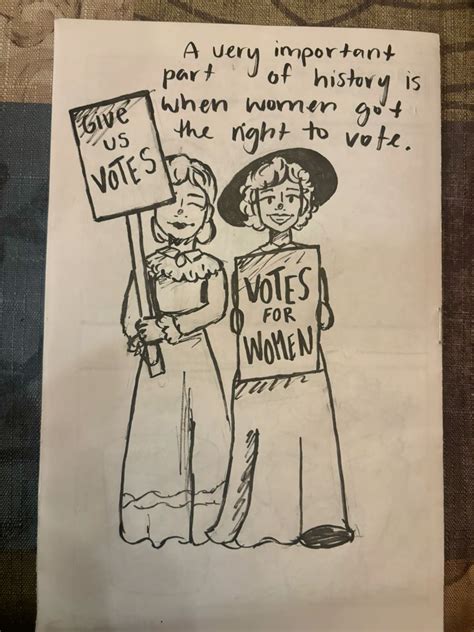 A very important
part of history is
when women got
the right to vote.
Give
us
VOTES
VOTES
FOR
WOMEN